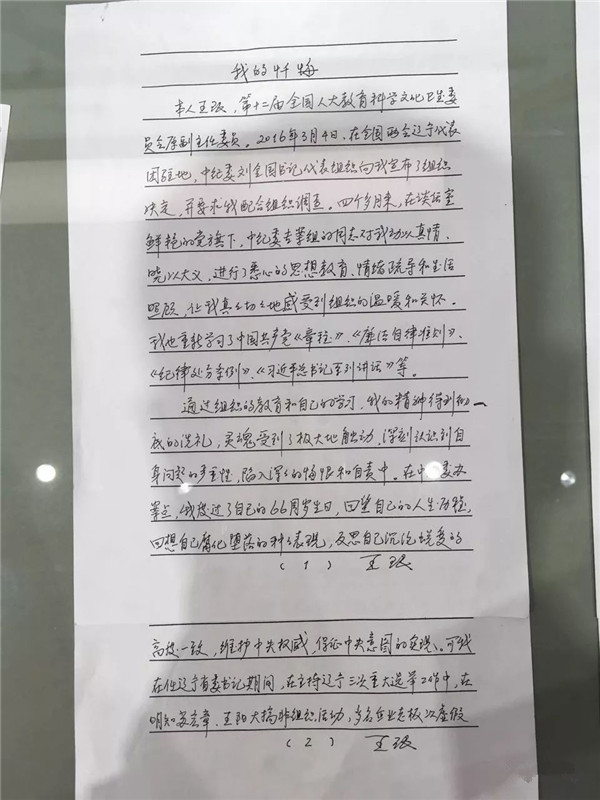 我的忏悔
本人王珉，第十二届全国人大教育科学文化卫生委
员会原副主任委员。2016年3月4日、在全国两会辽宁代表
团驻地，中纪委刘金国书记代表组织向我宣布了组织
决定，并要求我配合组织调查。四个多月来，在谈话室
鲜艳的党旗下，中纪委专案组的同志对我动以真情、
晓以大义，进行了悉心的思想教育、情绪疏导和生活
照顾，让我真真切切地感受到组织的温暖和关怀。
我也重新学习了中国共产党《章程》、《廉洁自律准则》、
《纪律处分条例》、《习近平总书记系列讲话》等。
通过组织的教育和自己的学习，我的精神得到彻
底的洗礼，灵魂受到了极大地触动，深刻认识到自
身问题的严重性，陷入深深的悔恨和自责中。在中纪委办
案点，我度过了自己的66周岁生日，回望自己的人生历程，
回想自己腐化堕落的种种表现，反思自己沉沦蜕变的
(1) 王珉
高度一致，维护中央权威，保证中央意图的实现。可我
在任辽宁省委书记期间，在主持辽宁三次重大选举工作中，在
明知苏宏章、王阳大搞非组织活动，多名企业老板次席假
(2) 王珉